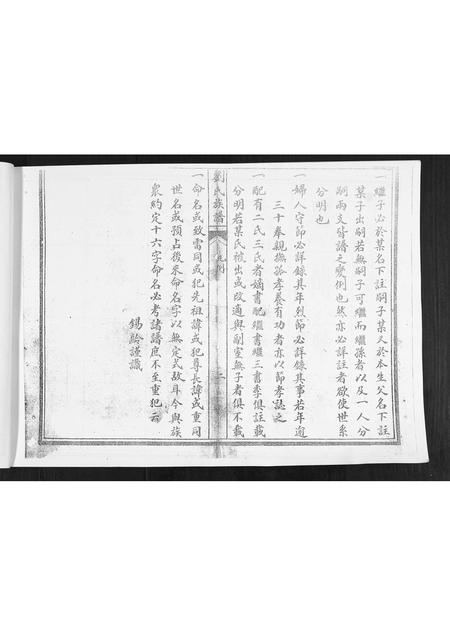 一繼子必於某名下註嗣子某又於本生父名下註
某子出嗣若無嗣子可繼而繼孫者以及一人分
嗣兩支皆譜之變例也然亦必詳註者欲使世系
分明也
一婦人守節必詳錄其年烈節必詳錄其事若年逾
三十奉親撫孤孝養有功者亦以節孝誌之
一配有二氏三氏者嫡書配繼書繼三書季俱註載
分明若某氏被出或改適與副室無子者俱不載
劉氏族譜
凡例
二
一命名或致雷同或犯先祖諱或犯尊長諱或重同
世名或預占後來命名字以無定式故耳今與族
衆約定十六字命名必考諸譜庶不至重犯云
錫齡謹識